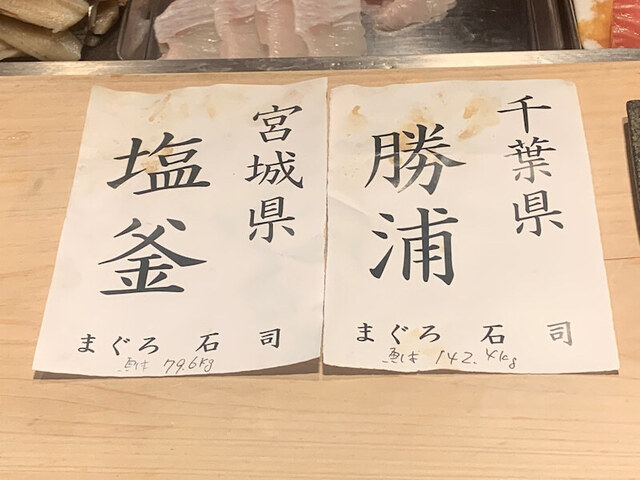 宮城県
塩釜
まぐろ 石司
魚は 79.6kg
千葉県
勝浦
まぐろ 石司
魚は 142.4kg